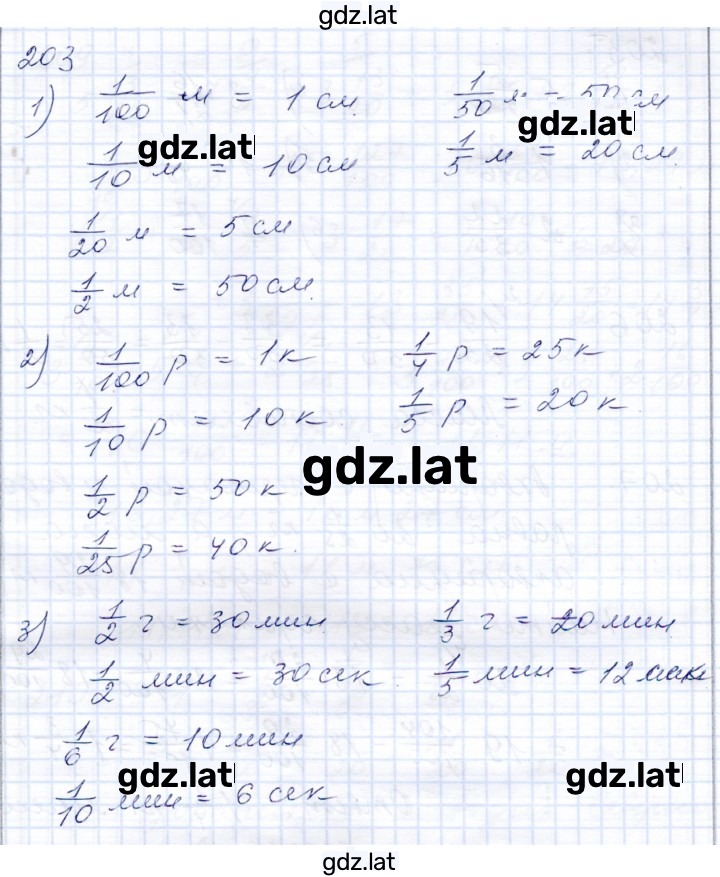 gdz.lat
203
1) 1/100 м = 1 см. 1/50 м = 50 см
gdz.lat gdz.lat
1/10 м = 10 см 1/5 м = 20 см.
1/20 м = 5 см
1/2 м = 50 см.
2) 1/100 р = 1 к 1/4 р = 25 к
1/10 р = 10 к. 1/5 р = 20 к.
gdz.lat
1/2 р = 50 к
1/25 р = 40 к.
3) 1/2 г = 30 мин. 1/3 г = 20 мин.
1/2 мин = 30 сек. 1/5 мин = 12 сек
1/6 г = 10 мин
gdz.lat gdz.lat
1/10 мин = 6 сек
gdz.lat